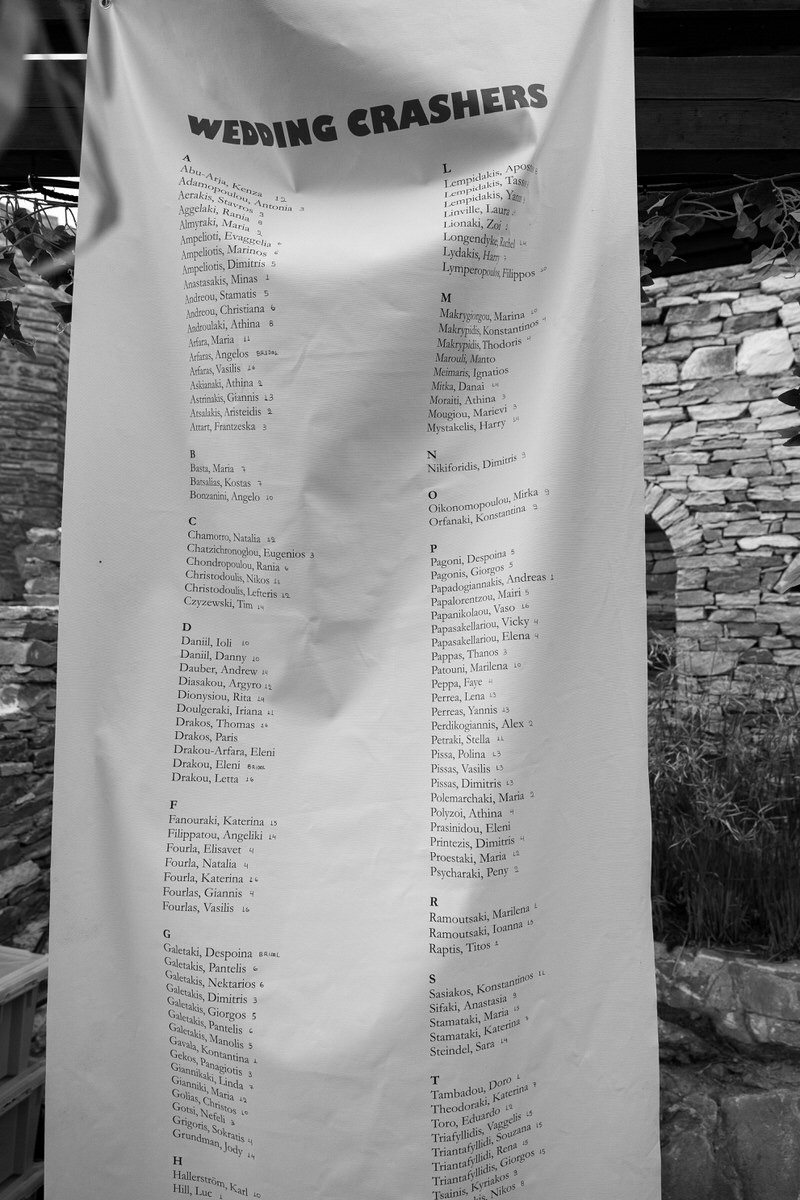 WEDDING CRASHERS
A
Abu-Arja, Kenza 12
Adamopoulou, Antonia 3
Aerakis, Stavros 3
Aggelaki, Rania 8
Almyraki, Maria 2
Ampelioti, Evaggelia
Ampeliotis, Marinos 6
Ampeliotis, Dimitris 5
Anastasakis, Minas 1
Andreou, Stamatis 5
Andreou, Christiana 6
Androulaki, Athina 8
Arfara, Maria 11
Arfaras, Angelos BRIDAL
Arfaras, Vasilis 16
Askianaki, Athina 2
Astrinakis, Giannis 13
Atsalakis, Aristeidis 2
Attart, Frantzeska 3
B
Basta, Maria 7
Batsalias, Kostas 7
Bonzanini, Angelo 10
C
Chamorro, Natalia 12
Chatzichronoglou, Eugenios 3
Chondropoulou, Rania 6
Christodoulis, Nikos 11
Christodoulis, Lefteris 12
Czyzewski, Tim 14
D
Daniil, Ioli 10
Daniil, Danny 10
Dauber, Andrew 14
Diasakou, Argyro 12
Dionysiou, Rita 14
Doulgeraki, Iriana 11
Drakos, Thomas 16
Drakos, Paris
Drakou-Arfara, Eleni
Drakou, Eleni BRIDAL
Drakou, Letta 16
F
Fanouraki, Katerina 15
Filippatou, Angeliki 14
Fourla, Elisavet 4
Fourla, Natalia 4
Fourla, Katerina 16
Fourlas, Giannis 4
Fourlas, Vasilis 16
G
Galetaki, Despoina BRIDAL
Galetakis, Pantelis 6
Galetakis, Nektarios 6
Galetakis, Dimitris 3
Galetakis, Giorgos 5
Galetakis, Pantelis 6
Galetakis, Manolis 5
Gavala, Kontantina 1
Gekos, Panagiotis 3
Giannikaki, Linda 7
Gianniki, Maria 12
Golias, Christos 10
Gotsi, Nefeli 3
Grigoris, Sokratis 4
Grundman, Jody 14
H
Hallerström, Karl 10
Hill, Luc 1
L
Lempidakis,
Lempidakis,
Lempidakis,
Linville, Laura
Lionaki, Zoi 2
Longendyke, Rachel 14
Lydakis, Harry 2
Lymperopoulos, Filippos 10
M
Makrygiorgou, Marina 10
Makrypidis, Konstantinos 4
Makrypidis, Thodoris
Marouli, Manto
Meimaris, Ignatios
Mitka, Danai 14
Moraiti, Athina 3
Mougiou, Marievi 3
Mystakelis, Harry 10
N
Nikiforidis, Dimitris 3
O
Oikonomopoulou, Mirka 9
Orfanaki, Konstantina 9
P
Pagoni, Despoina 5
Pagonis, Giorgos 5
Papadogiannakis, Andreas 1
Papalorentzou, Mairi 5
Papanikolaou, Vaso 16
Papasakellariou, Vicky 4
Papasakellariou, Elena 4
Pappas, Thanos 3
Patouni, Marilena 10
Peppa, Faye 4
Perrea, Lena 13
Perreas, Yannis 13
Perdikogiannis, Alex 2
Petraki, Stella 11
Pissa, Polina 13
Pissas, Vasilis 13
Pissas, Dimitris 13
Polemarchaki, Maria 2
Polyzoi, Athina 4
Prasinidou, Eleni
Printezis, Dimitris 4
Proestaki, Maria 12
Psycharaki, Peny 2
R
Ramoutsaki, Marilena 1
Ramoutsaki, Ioanna 15
Raptis, Titos 2
S
Sasiakos, Konstantinos 11
Sifaki, Anastasia 9
Stamataki, Maria 15
Stamataki, Katerina 9
Steindel, Sara 14
T
Tambadou, Doro 1
Theodoraki, Katerina 9
Toro, Eduardo 12
Triafyllidis, Vaggelis 15
Triantafyllidi, Souzana 15
Triantafyllidi, Rena 15
Triantafyllidis, Giorgos 15
Tsainis, Kyriakos 9
Nikos 8